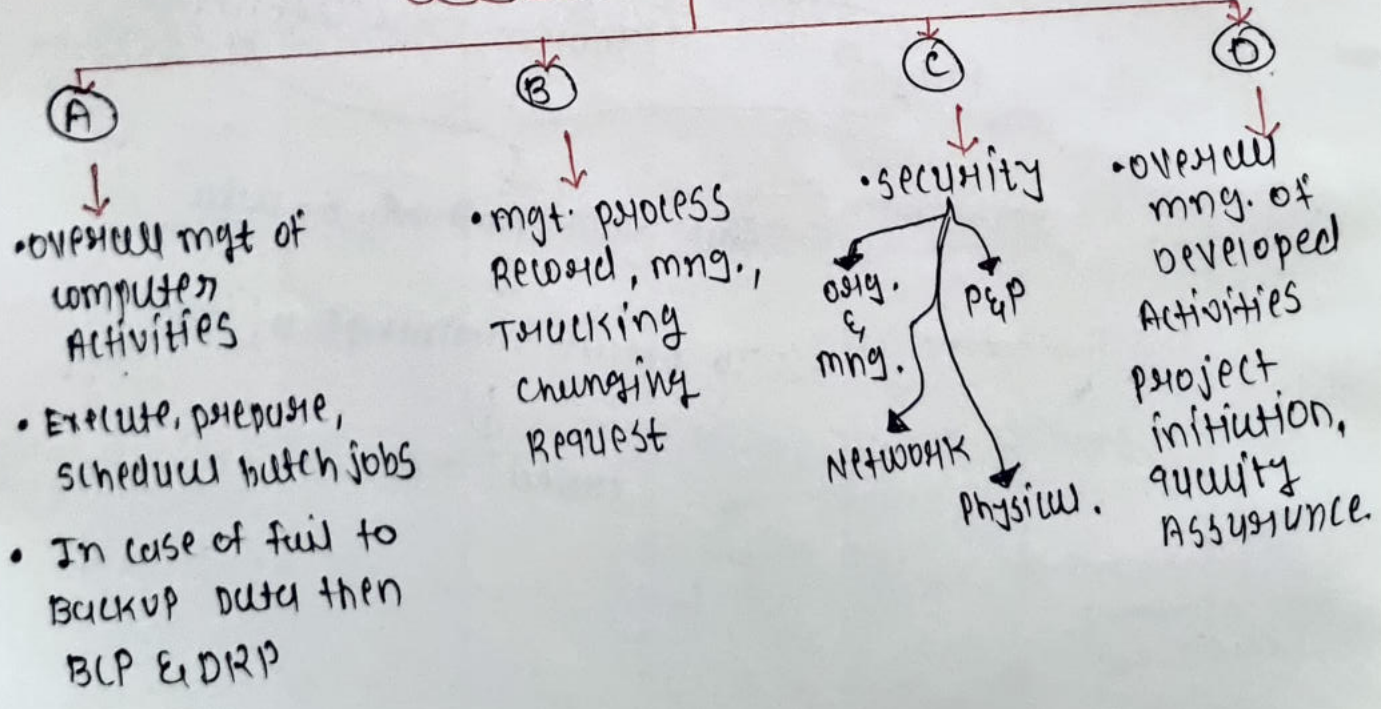 A
• overall mgt of
computer
Activities
• Execute, prepare,
schedule batch jobs
• In case of fail to
Backup Data then
BCP & DRP
B
• mgt. process
Record, mng.,
Tracking
changing
Request
C
• security
org.
&
mng.
P&P
Network
Physical.
D
• overall
mng. of
Developed
Activities
project
initiation,
quality
Assurance.